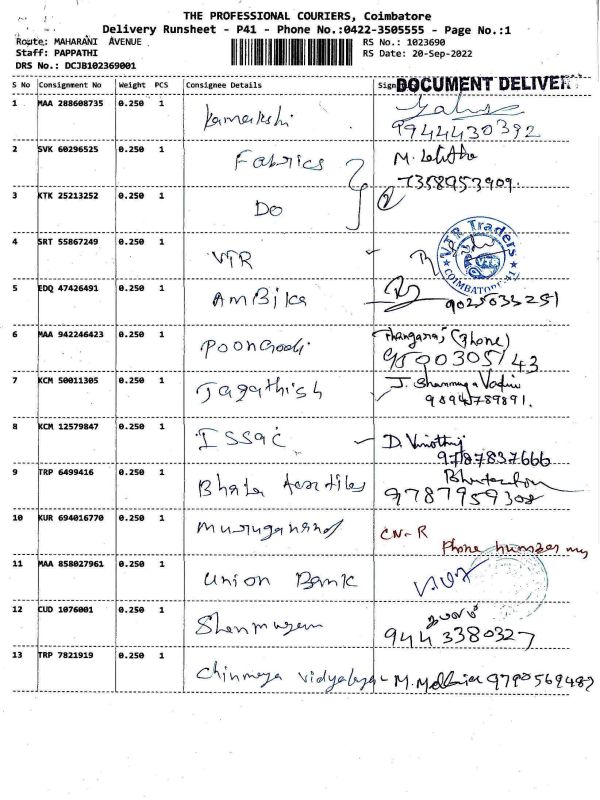 THE PROFESSIONAL COURIERS, Coimbatore
Delivery Runsheet - P41 - Phone No.:0422-3505555 - Page No.:1
Route: MAHARANI AVENUE RS No.: 1023690
Staff: PAPPATHI RS Date: 20-Sep-2022
DRS No.: DCJB102369001
S No Consignment No Weight PCS Consignee Details Sign DOCUMENT DELIVER
1 MAA 288608735 0.250 1 Kamakshi
9944430392
2 SVK 60296525 0.250 1 Fabrics M. Lalitha
7358953909.
3 KTK 25213252 0.250 1 Do
4 SRT 55867249 0.250 1 VTR VTR Traders VTR COIMBATORE-41
5 EDQ 47426491 0.250 1 AmBika 9025033251
6 MAA 942246423 0.250 1 Poongodi Thangaraj (Phone)
9500305143
7 KCM 50011305 0.250 1 Jagathish J. Shanmuga Vadivu
9894789891.
8 KCM 12579847 0.250 1 ISSac D. Vinothuj
9787837666
9 TRP 6499416 0.250 1 Bhata
9787959308
10 KUR 694016770 0.250 1 Muruganand CN-R
Phone number my
11 MAA 858027961 0.250 1 Union Bank
12 CUD 1076001 0.250 1 Shanmugam
9443380327
13 TRP 7821919 0.250 1 Chinmaya Vidyalaya - M. 9790569487